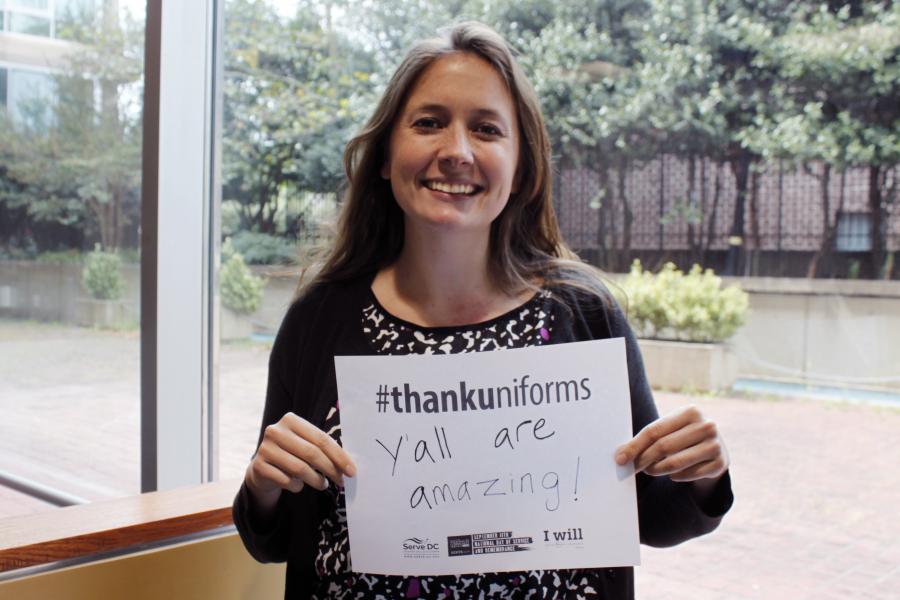 #thankuniforms
Y'all are
amazing!
Serve DC
SEPTEMBER 11TH
NATIONAL DAY OF SERVICE
AND REMEMBRANCE
I will